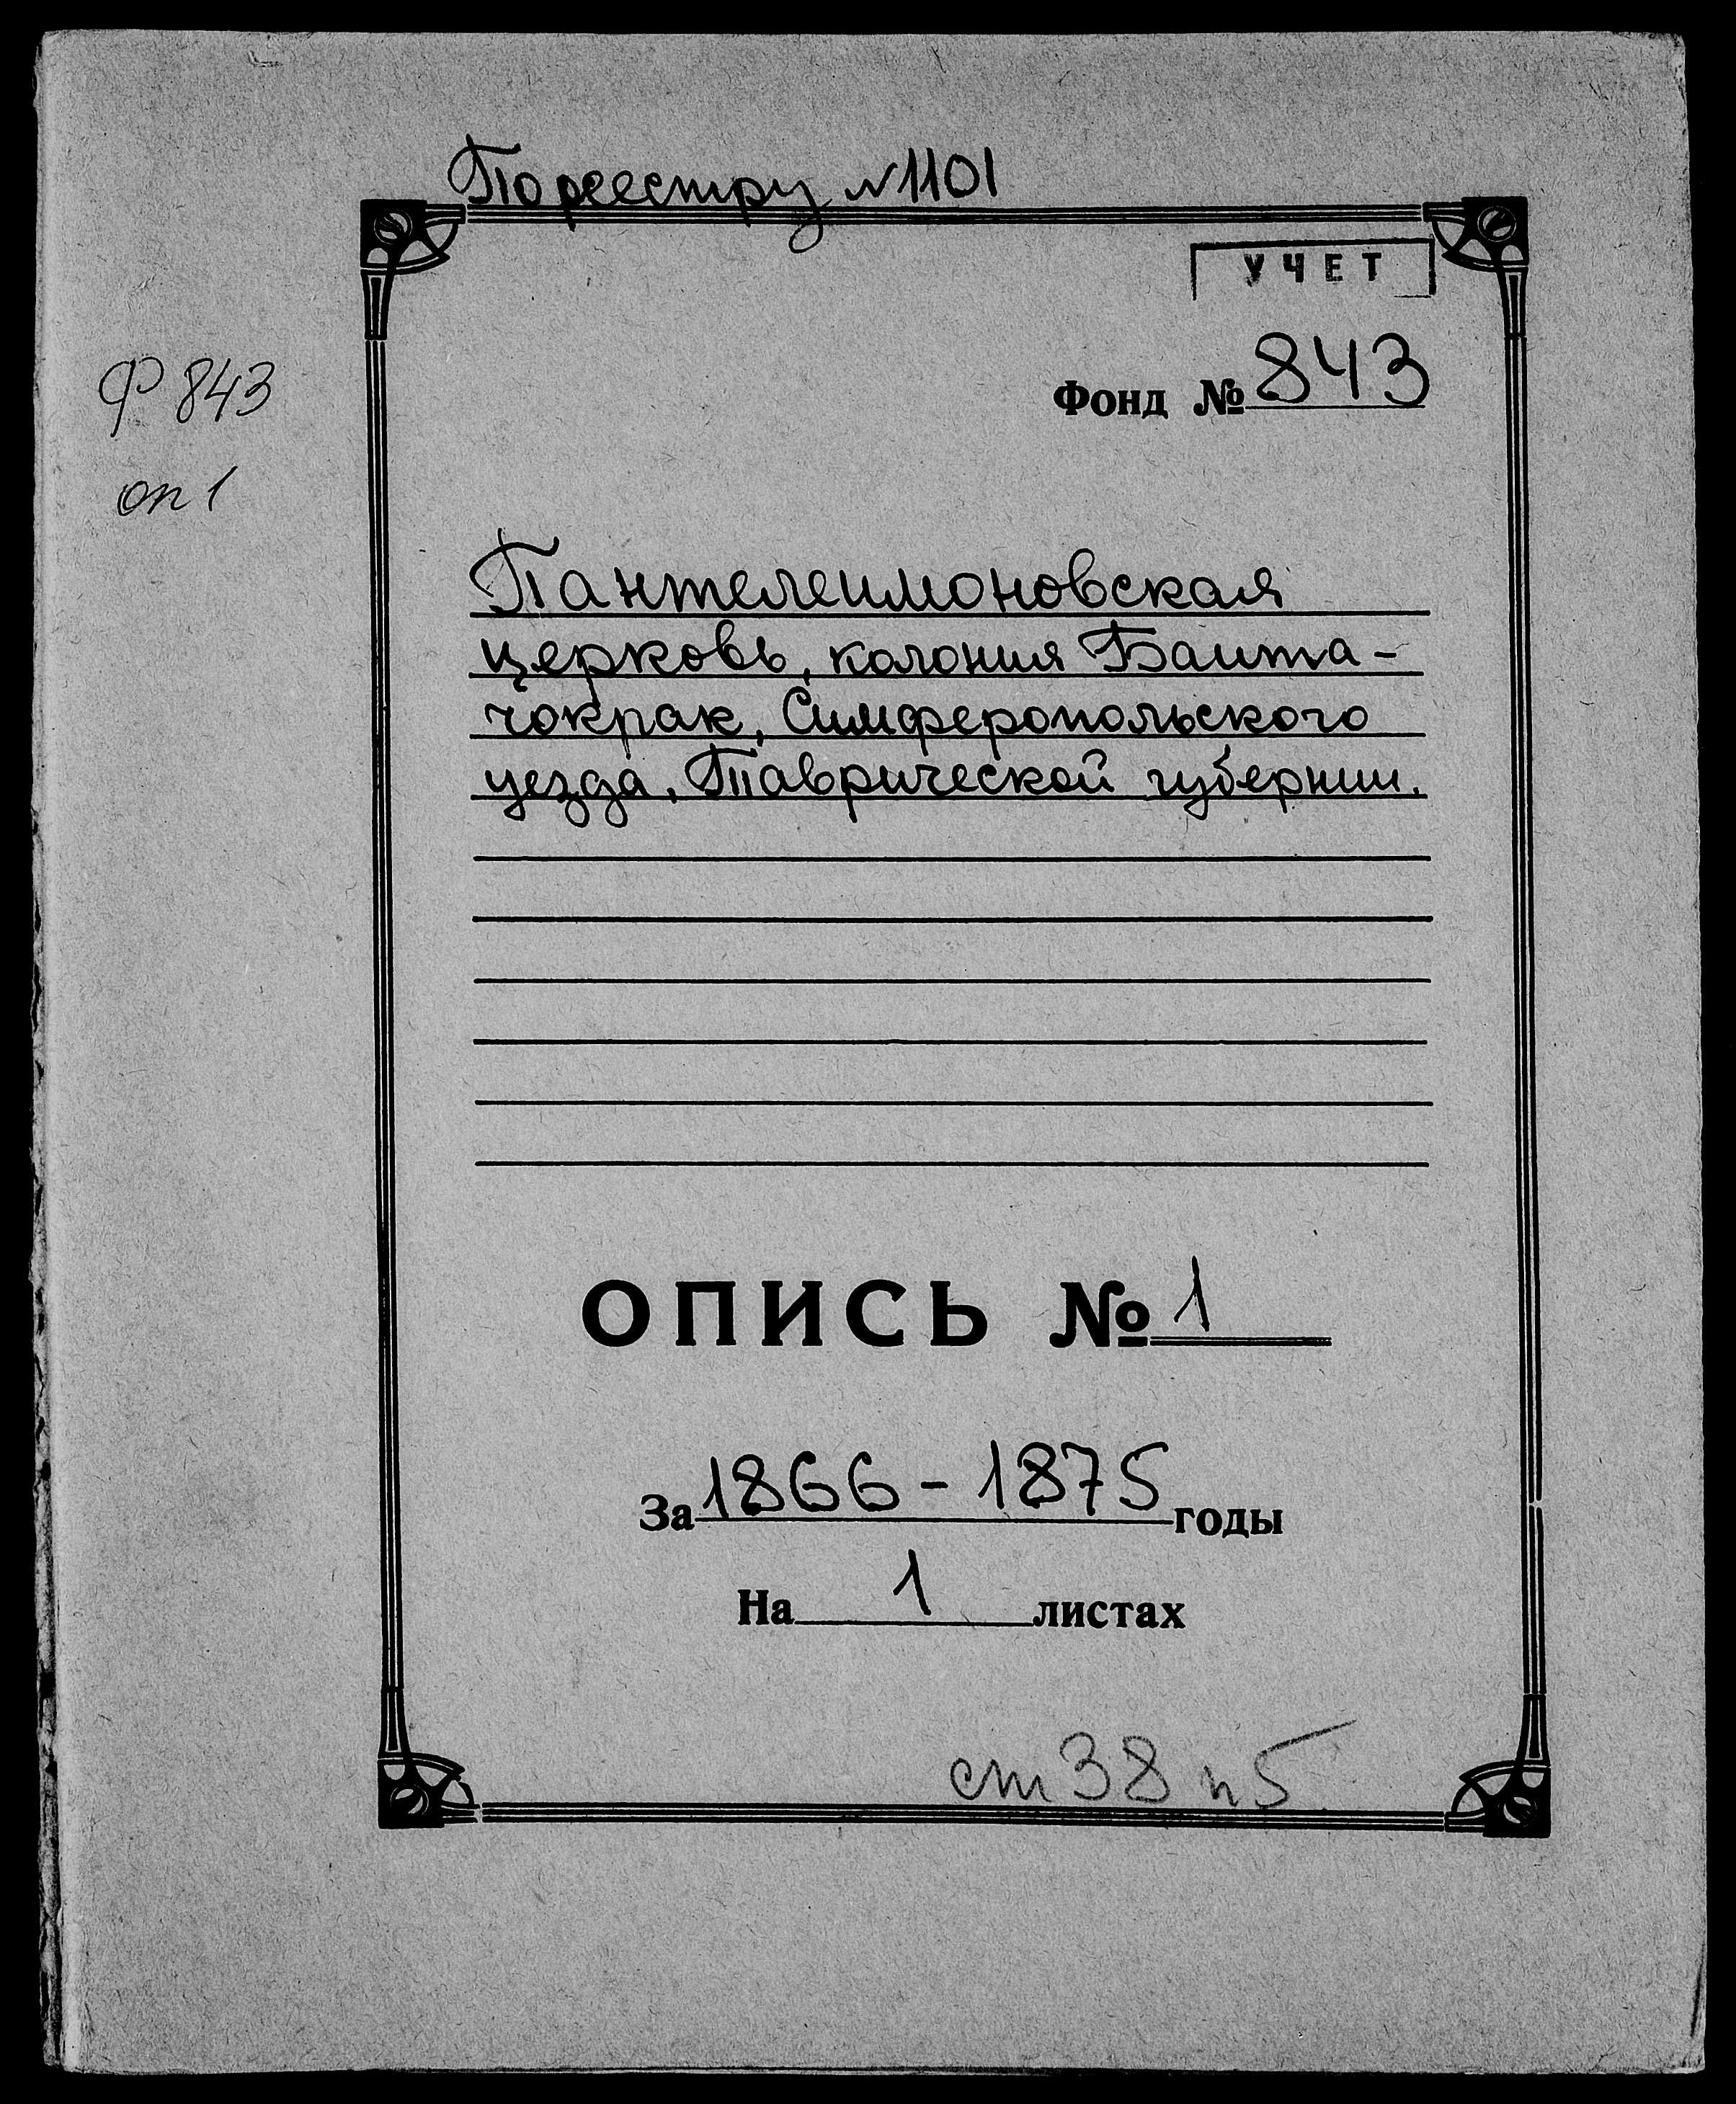 По реестру №1101
УЧЕТ
Фонд № 843
Ф 843
оп 1
Пантелеимоновская
церковь, колония Баита-
чокрак, Симферопольского
уезда, Таврической губернии.
ОПИСЬ № 1
За 1866 - 1875 годы
На 1 листах
ст 38 п 5